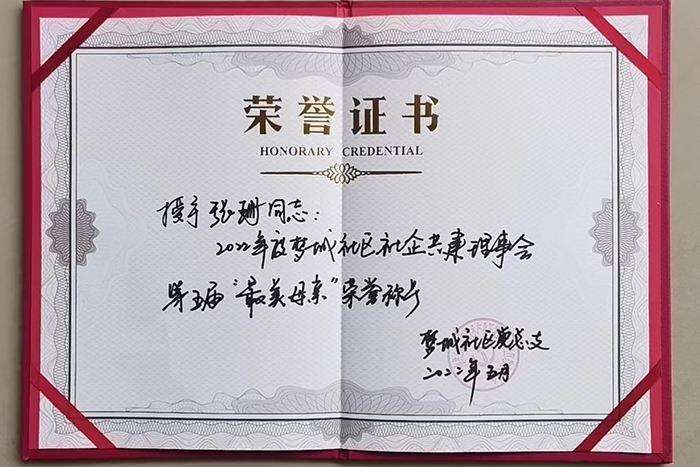 荣誉证书
HONORARY CREDENTIAL
授予张珊同志：
2022年度梦城社区社企共建理事会
第五届“最美母亲”荣誉称号
梦城社区党总支
2022年五月